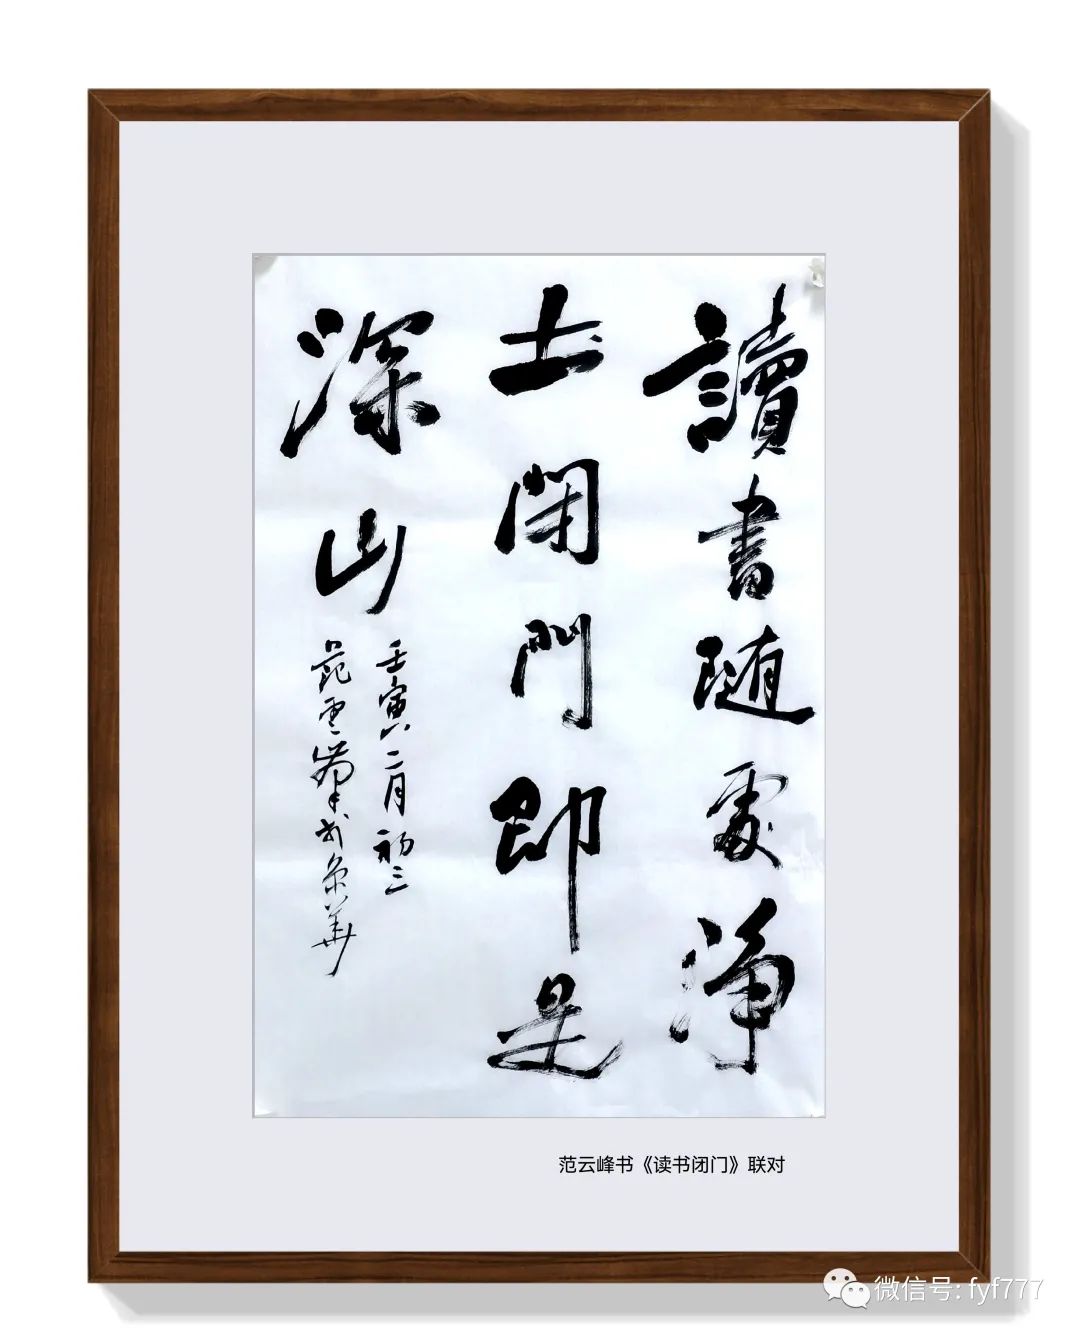 讀書随處净
土閉門即是
深山
壬寅二月初三
范雲峰书於京華
范云峰书《读书闭门》联对
微信号: fyf777